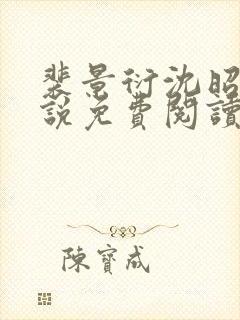 裴景衍沈昭
說免費閱讀
陳寶成